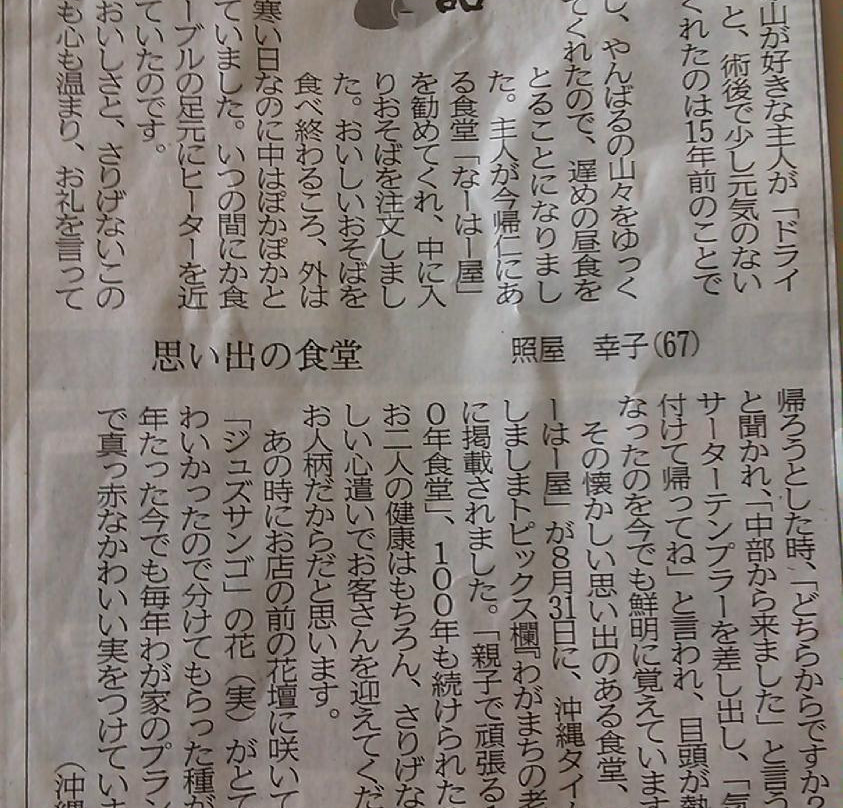 山が好きな主人が「ドライ
と、術後で少し元気のない
くれたのは15年前のことで
し、やんばるの山々をゆっく
てくれたので、遅めの昼食を
とることになりまし
た。主人が今帰仁にあ
る食堂「なーはー屋」
を勧めてくれ、中に入
りおそばを注文しまし
た。おいしいおそばを
食べ終わるころ、外は
寒い日なのに中はぽかぽかと
ていました。いつの間にか食
ーブルの足元にヒーターを近
ていたのです。
おいしさと、さりげないこの
も心も温まり、お礼を言って
思い出の食堂
照屋 幸子(67)
帰ろうとした時、「どちらからですか
と聞かれ、「中部から来ました」と言う
サーターテンプラーを差し出し、「気
付けて帰ってね」と言われ、目頭が熱
なったのを今でも鮮明に覚えています
その懐かしい思い出のある食堂、
ーはー屋」が8月31日に、沖縄タイム
しましまトピックス欄『わがまちの老
に掲載されました。「親子で頑張る4
0年食堂」、100年も続けられた
お二人の健康はもちろん、さりげな
しい心遣いでお客さんを迎えてくだ
お人柄だからだと思います。
あの時にお店の前の花壇に咲いて
「ジュズサンゴ」の花(実)がとて
わいかったので分けてもらった種が
年たった今でも毎年わが家のプラン
で真っ赤なかわいい実をつけていま
(沖縄